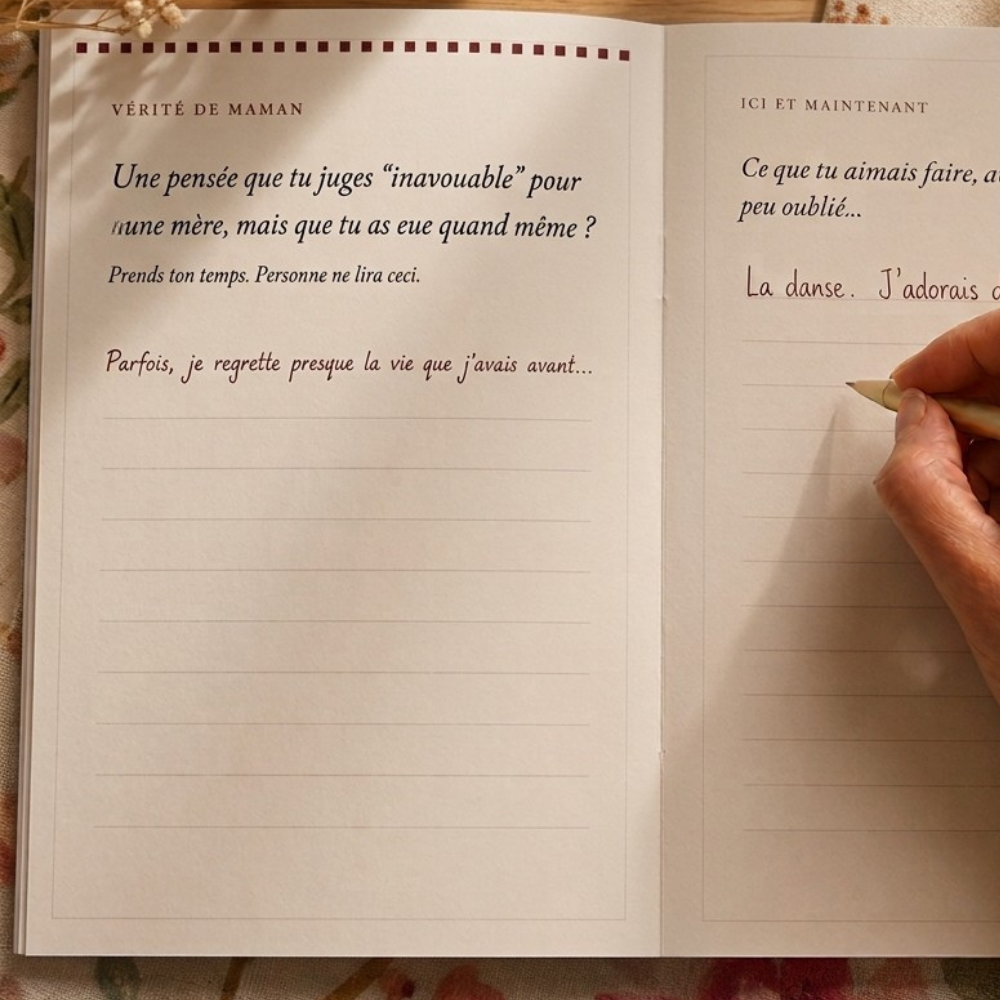 VÉRITÉ DE MAMAN
Une pensée que tu juges “inavouable” pour
mère, mais que tu as eue quand même ?
Prends ton temps. Personne ne lira ceci.
Parfois, je regrette presque la vie que j'avais avant...
ICI ET MAINTENANT
Ce que tu aimais faire,
peu oublié...
La danse. J'adorais